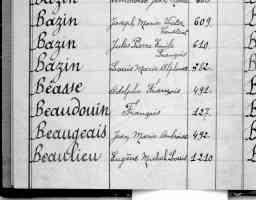 Bazin
Bazin Joseph Marie Victor 609.
Bazin Jules Pierre Emile 610.
François
Bazin Louis Marie Alphonse 562.
Béasse Adolphe François 491.
Beaudouin François 127.
Beaugeais Jean Marie Ambroise 492.
Beaulieu Eugène Michel Louis 1210